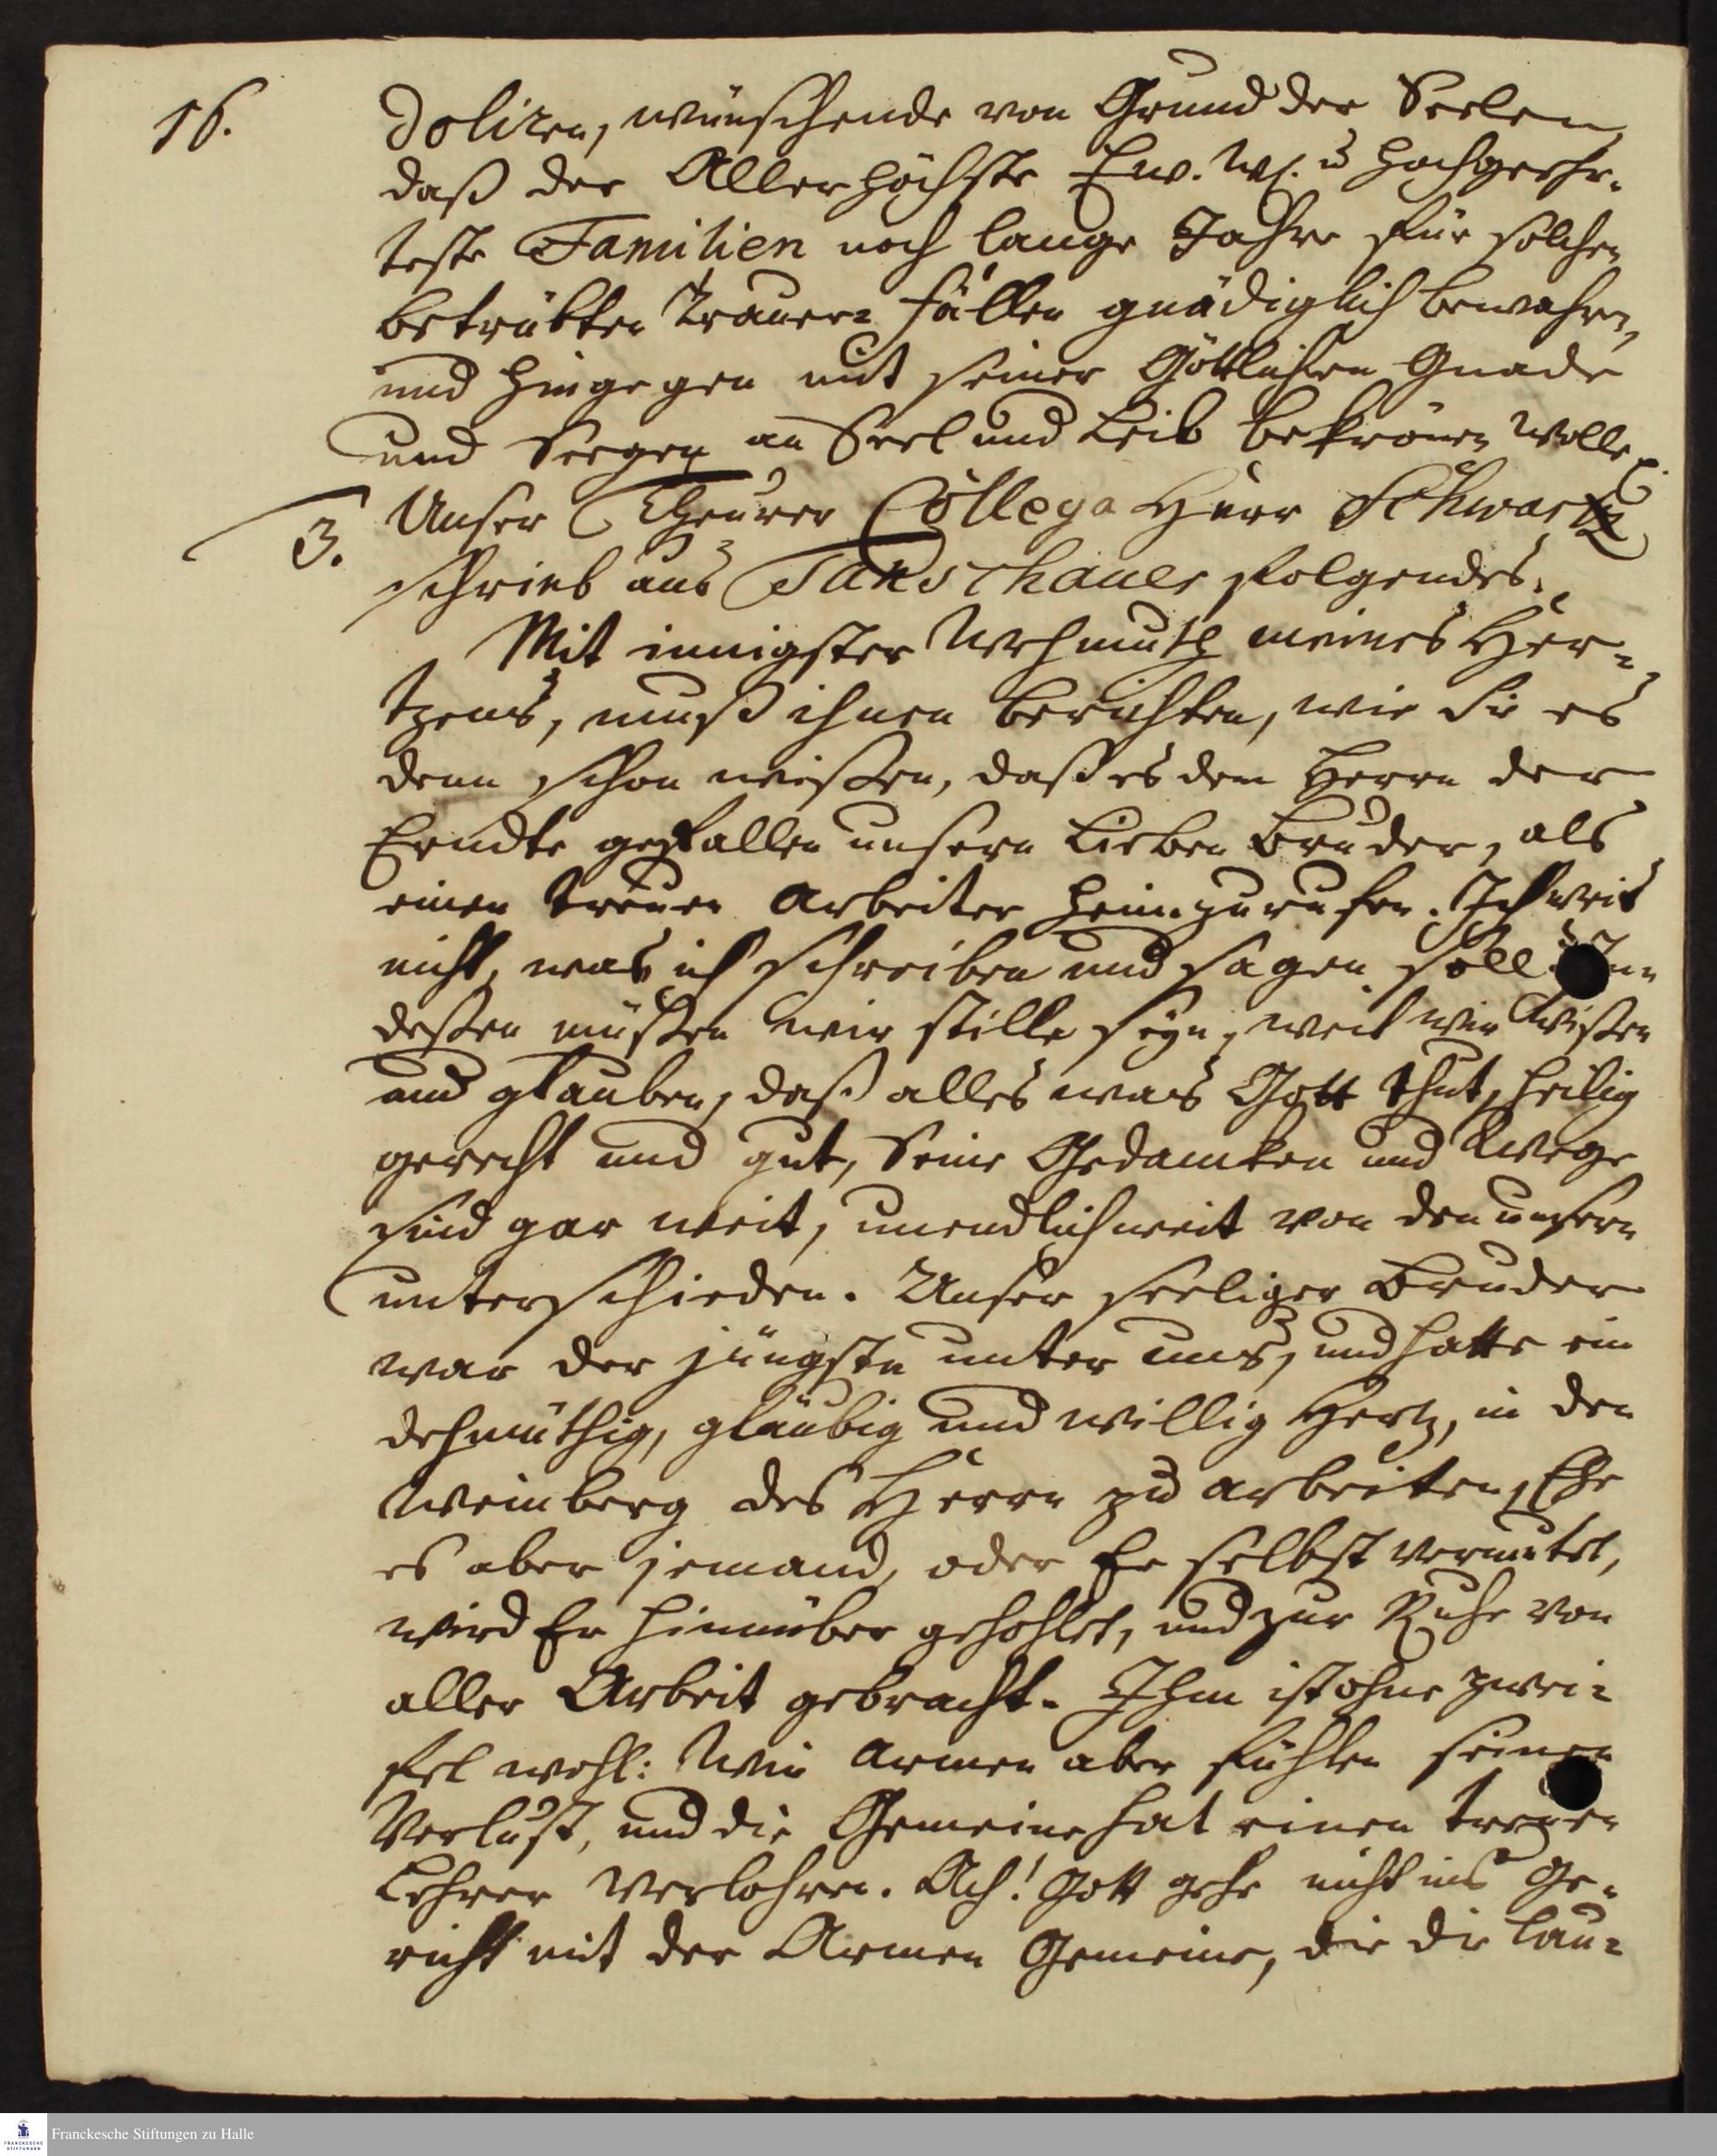 16.
doliren, wünschende von Grund der Seelen,
daß der Allerhöchste Ew. Wl. u hochgeehr-
teste Familien noch lange Jahre für solchen
betrübten Trauer-fällen gnädiglich bewahren,
und hingegen mit seiner Göttlichen Gnade
und Seegen an Seel und Leib bekrönen wolle
3. Unser Theurer Collega Herr Schwartz
schrieb aus Tanschauer folgendes.
Mit innigster Wehmuth meines Her-
tzens, muß ihnen berichten, wie Sie es
denn schon wißen, daß es dem Herrn der
Erndte gefallen unsern Lieben Bruder, als
einen treuen Arbeiter heimzurufen. Ich weis
nicht, was ich schreiben und sagen soll. In-
deßen müßen wir stille seyn, weil wir wißen
und glauben, daß alles was Gott thut, heilig
gerecht und gut, Seine Gedancken und Wege
sind gar weit, unendlich weit von den unsern
unterschieden. Unser seeliger Bruder
war der jüngste unter uns, und hatte ein
dehmüthig, gläubig und willig Hertz, in den
Weinberg des Herrn zu arbeiten, Ehe
es aber jemand, oder Er selbst vermutet,
wird Er hinnüber gehohlet, und zur Ruhe von
aller Arbeit gebracht. Ihm ist ohne zwei-
fel wohl: Wir Armen aber fühlen seinen
Verlust, und die Gemeine hat einen treuen
Lehrer verlohren. Ach! Gott gehe nicht ins Ge-
richt mit der Armen Gemeine, die die lau-
Franckesche Stiftungen zu Halle
FRANCKESCHE
STIFTUNGEN